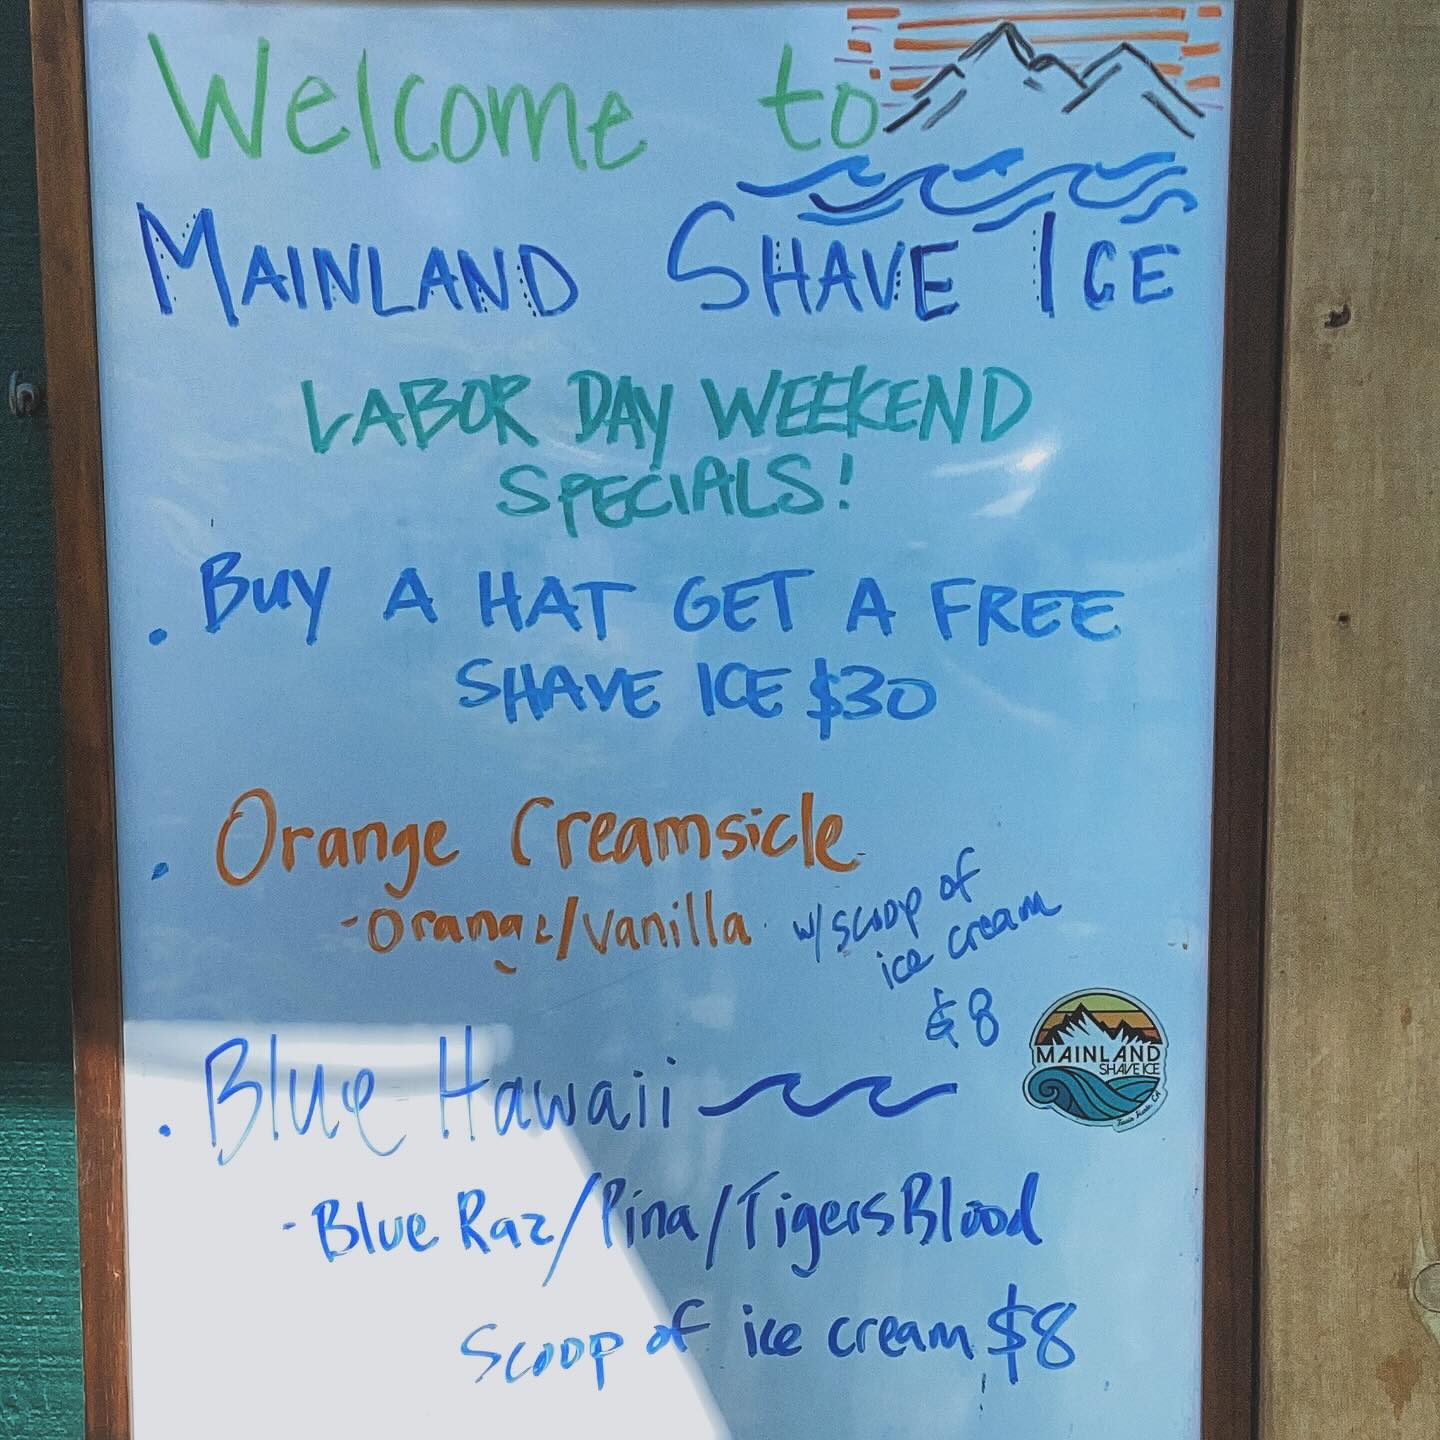 Welcome to
MAINLAND SHAVE ICE
LABOR DAY WEEKEND
SPECIALS!
• Buy A HAT GET A FREE
SHAVE ICE $30
• Orange Creamsicle
- Orange/Vanilla w/ scoop of
ice cream
$8
• Blue Hawaii
- Blue Raz/Pina/TigersBlood
Scoop of ice cream $8
MAINLAND
SHAVE ICE